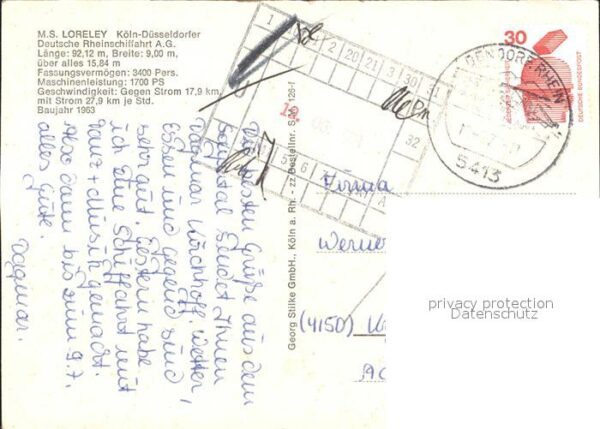 M.S. LORELEY Köln-Düsseldorfer
Deutsche Rheinschiffahrt A.G.
Länge: 92,12 m, Breite: 9,00 m,
über alles 15,84 m
Fassungsvermögen: 3400 Pers.
Maschinenleistung: 1700 PS
Geschwindigkeit: Gegen Strom 17,9 km,
mit Strom 27,9 km je Std.
Baujahr 1963
Die besten Grüße aus dem
sendet Ihnen
Dagmar Kirchhoff. Wetter,
Essen und Gegend sind
sehr gut. Gestern habe
ich eine Schiffahrt mit
Tanz + Musik gemacht.
Also dann bis zum 9.7.
alles Gute.
Dagmar.
Georg Stilke GmbH., Köln a. Rh. - zz Bestellnr.
1
2 20 21 3 30 31
32
5 6
A
30
DEUTSCHE BUNDESPOST
BENDORF, RHEIN
5413
Firma
Werner
(4150)
privacy protection
Datenschutz